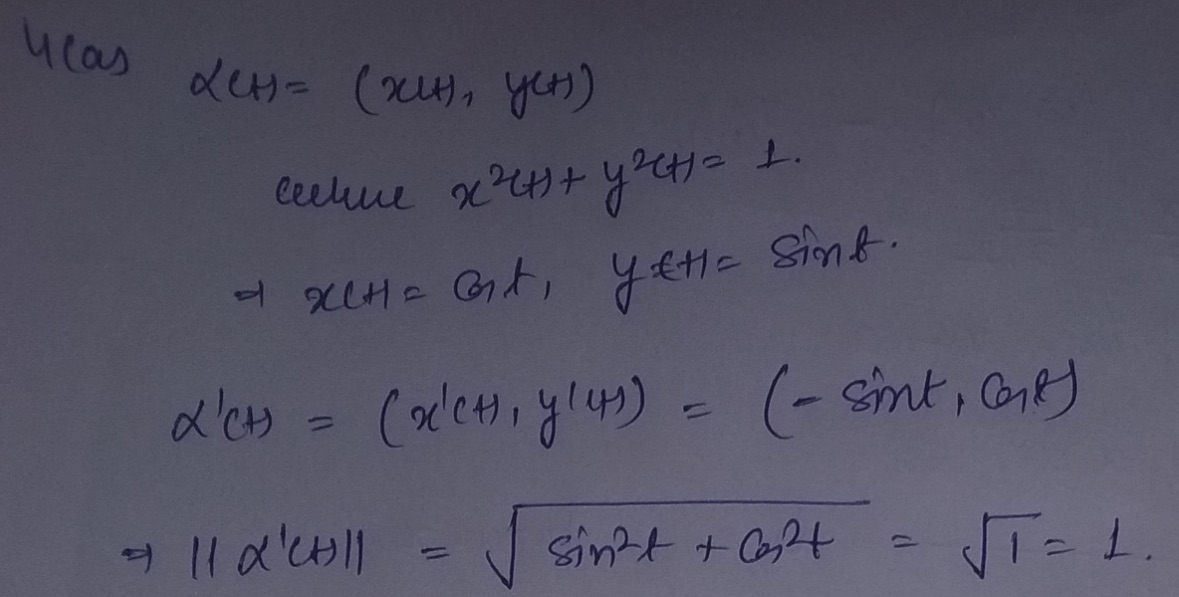 4(a)
α(t) = (x(t), y(t))
where x²(t) + y²(t) = 1.
⇒ x(t) = cos t, y(t) = sin t.
α'(t) = (x'(t), y'(t)) = (- sin t, cos t)
⇒ ||α'(t)|| = √(sin²t + cos²t) = √1 = 1.